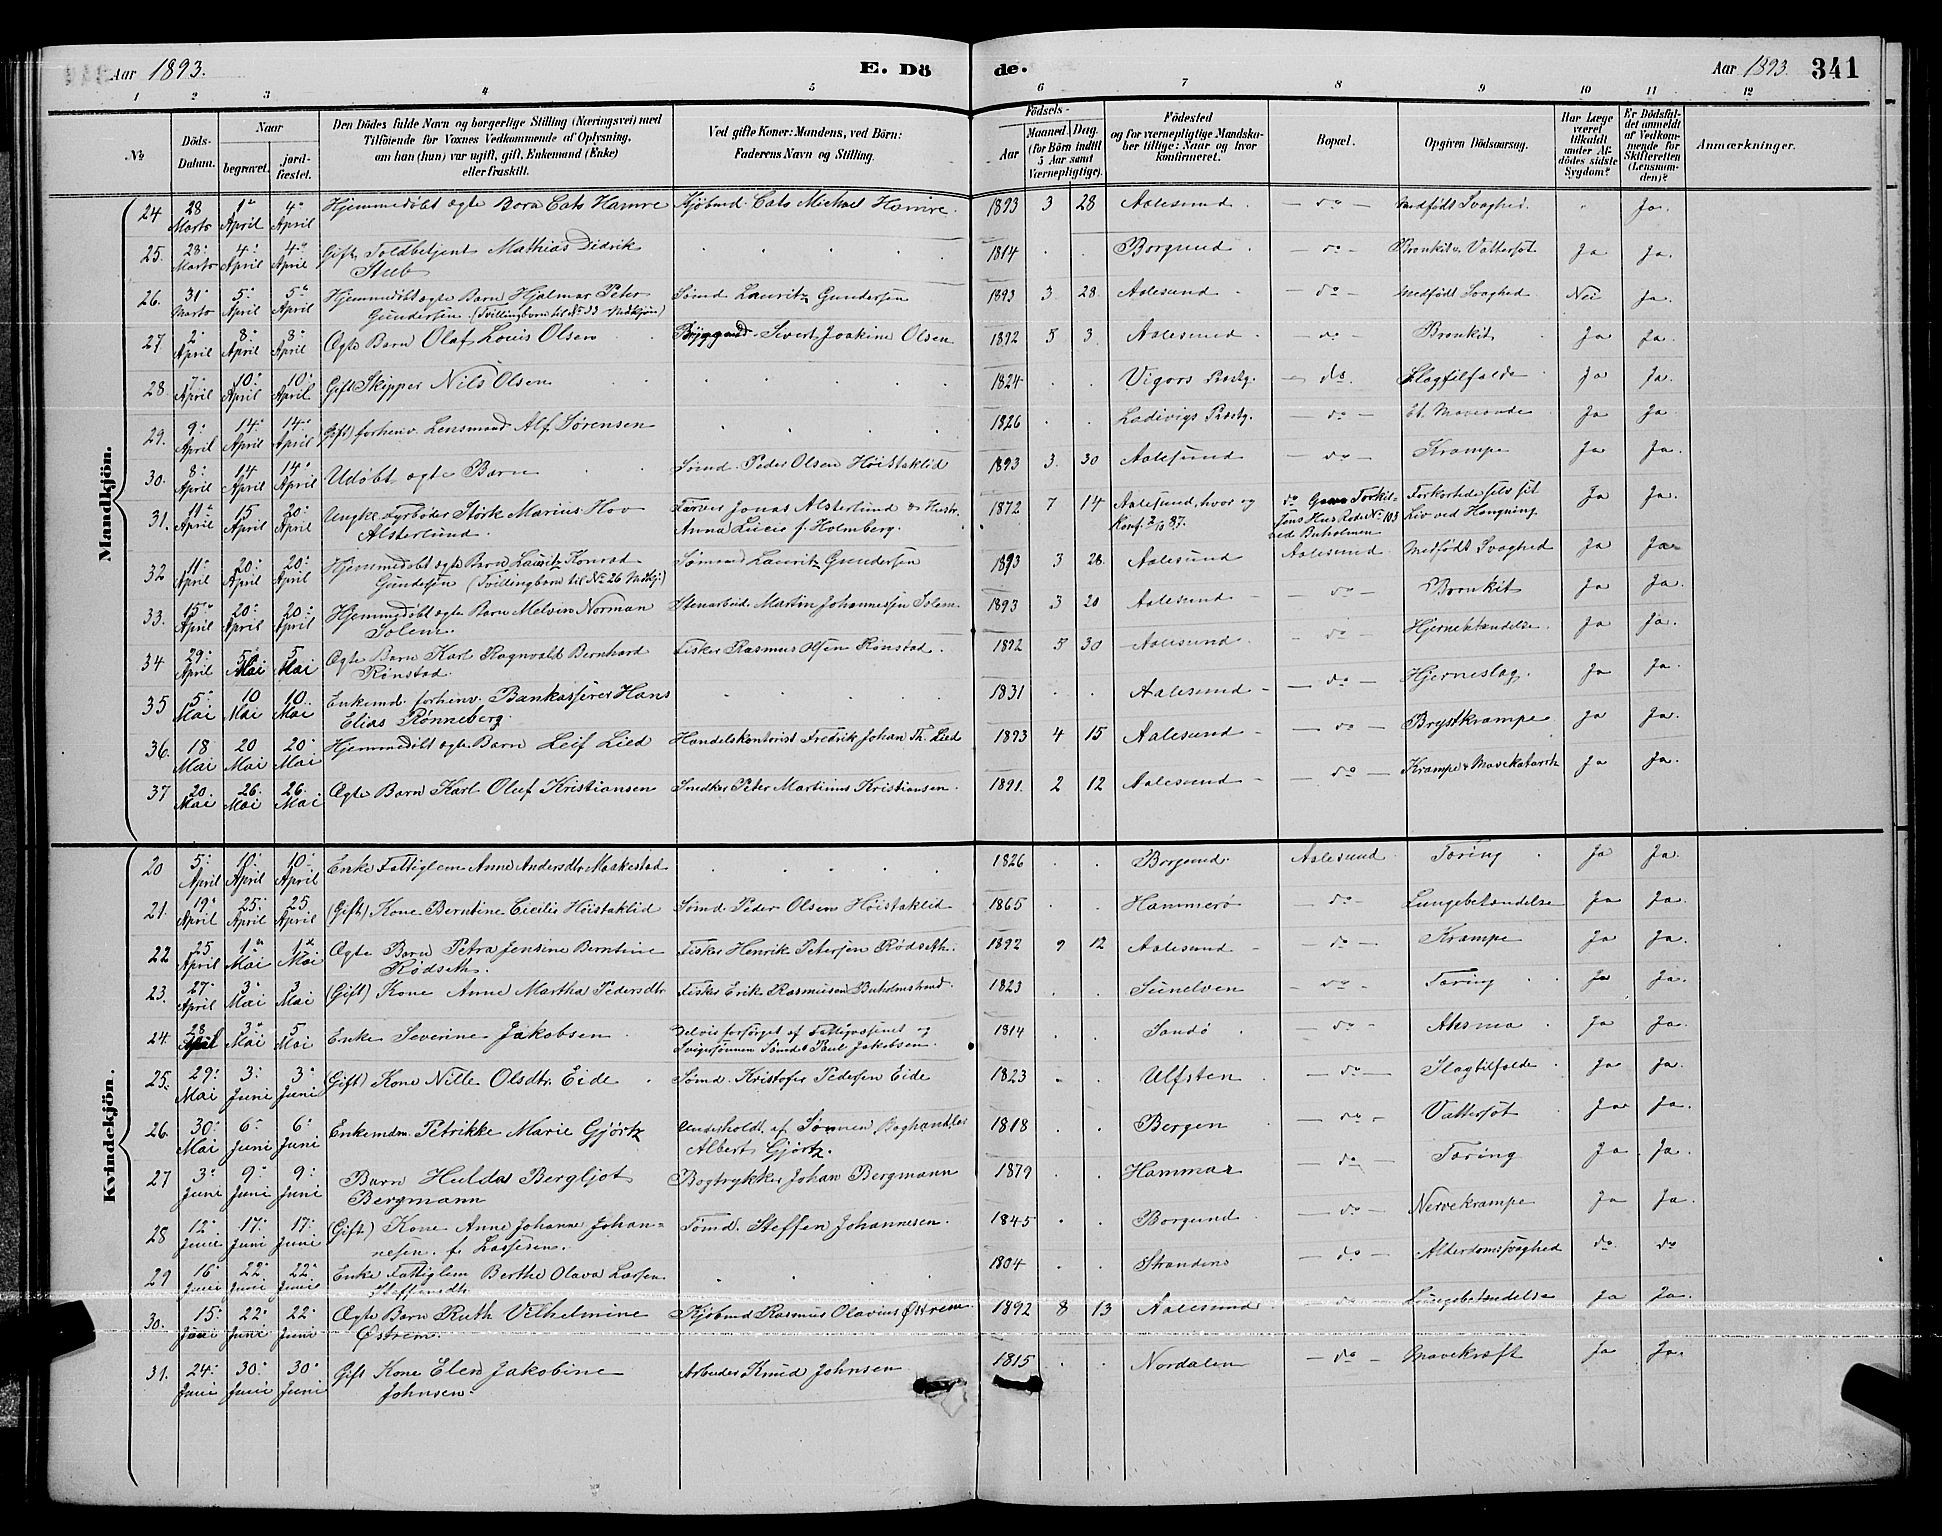 Aar 1893. E. Dö de. Aar 1893. 341
1 2 3 4 5 6 7 8 9 10 11 12
No
Döds-Datum.
Naar
begravet.
jord-fæstet.
Den Dödes fulde Navn og borgerlige Stilling (Næringsvei) med
Tilföiende for Voxnes Vedkommende af Oplysning,
om han (hun) var ugift, gift, Enkemand (Enke)
eller fraskilt.
Ved gifte Koner: Mandens, ved Börn:
Faderens Navn og Stilling.
Födsels-
Aar
Maaned. Dag.
(for Börn indtil
5 Aar samt
Værnepligtige).
Födested
og for værnepligtige Mandska-
ber tillige: Naar og hvor
konfirmeret.
Bopæl.
Opgiven Dödsaarsag.
Har Læge
været
tilkaldt
under Af-
dödes sidste
Sygdom?
Er Dödsfal-
det anmeldt
af Vedkom-
mende for
Skifteretten
(Lensman-
den)?
Anmærkninger.
Mandkjön.
24 28 Marts 1ste April 4de April Hjemmedøbt ægte Barn Cats Hamre Kjøbmd. Cats Michael Hamre. 1893 3 28 Aalesund do Medfødt Svaghed. " Ja.
25. 23 Marts 4 April 4 April Gift Toldbetjent Mathias Didrik
Stub 1814 Borgund do Bronkit & Vattersot Ja Ja.
26. 31 Marts 5 April 5 April Hjemmedøbt ægte Barn Hjalmar Peter
Gundersen (Tvillingbarn til No 32 Mdkjøn) Sømd Lauritz Gundersen 1893 3 28 Aalesund do Medfødt Svaghed Nei Ja.
27. 2 April 8 April 8 April Ægte Barn Olaf Louis Olsen Sivert Joakim Olsen 1892 5 3 Aalesund do Bronkit Ja Ja.
28. 7 April 10 April 10 April Gift Skipper Nils Olsen 1824 Vigørs Præstg. do. Slagtilfælde Ja Ja.
29. 9 April 14 April 14 April (Gift) forhenv. Lensmand Alf Sørensen 1826 Præstg. do Mavesaar Ja Ja.
30. 8 April 14 April 14 April Udøbt ægte Barn Sømd. Peder Olsen Høistaklid 1893 3. 30 Aalesund do Krampe Ja Ja.
31. 11 April 15 April 20 April Ungke. Fyrbøder Størk Marius Hov
Alsterlund. Farver Jonas Alsterlund & Hustr.
Anna Lucie f. Holmberg. 1872 7 14 Aalesund, hvor og
Konf. 2/10 87. do Torkil-
sens Hus Rode No 103
ved Buholmen Forkortede selv sit
Liv ved Hængning. Ja Ja.
32 11 April 20 April 20 April Hjemmedøbt ægte Barn Lauritz Konrad
Gundersen (Tvillingbarn til No 26 Mdkj.) Sømand Lauritz Gundersen 1893 3 28. Aalesund Aalesund Medfødt Svaghed Ja Ja
33. 15 April 20 April 20 April Hjemmedøbt ægte Barn Melvin Norman
Solem. Stenarbeid. Martin Johannesen Solem. 1893 3 20 Aalesund do Bronkit Ja Ja.
34 29 April 5 Mai 5 Mai Ægte Barn Karl Ragnvald Bernhard
Rønstad. Fisker Rasmus Olsen Rønstad. 1892 5 30 Aalesund do Hjernebetændelse. Ja Ja.
35 5 Mai 10 Mai 10 Mai Enkemd. forhenv. Bankkasserer Hans
Elias Rønneberg. 1831 Aalesund do Hjerneslag. Ja Ja.
36. 18 Mai 20 Mai 20 Mai Hjemmedøbt ægte Barn Leif Lied Handelskontorist Fredrik Johan Th. Lied 1893 4 15 Aalesund do Brystkrampe Ja Ja.
37 20 Mai 26 Mai 26 Mai Ægte Barn Karl Oluf Kristiansen Snedker Peter Martinus Kristiansen. 1891. 2 12 Aalesund do Krampe & Mavekatarrh Ja Ja.
Kvindekjön.
20 5 April 10 April 10 April Enke Fattiglem Anne Andersdtr Maakestad 1826 Borgund. Aalesund Tæring Ja Ja.
21. 19 April 25 April 25 April (Gift) Kone Berntine Cicilie Høistaklid Sømd. Peder Olsen Høistaklid 1865 Hammerø do Lungebetændelse Ja Ja.
22 25 April 1ste Mai 1ste Mai Ægte Barn Petra Jensine Berntine
Rødseth. Fisker Henrik Petersen Rødseth. 1892 9 12 Aalesund do Krampe Ja Ja.
23. 27 April 3 Mai 3 Mai (Gift) Kone Anne Martha Pedersdtr Fisker Erik Rasmusen Buholmstrand. 1823 Sunelven do Tæring Ja Ja.
24. 28 April 3 Mai 5 Mai Enke Severine Jakobsen Delvis forsørget af Fattigvæsenet og
Svigersønnen Sømd. Paul Jakobsen. 1814 Sandø do Ahsma Ja Ja.
25. 29 Mai 3 Juni 3 Juni (Gift) Kone Nille Olsdtr. Eide Sømd. Kristofer Pedersen Eide 1823 Ulfsten do Slagtilfælde Ja Ja.
26. 30 Mai 6 Juni 6 Juni Enkemdm. Petrikke Marie Gjørtz Underholdt af Sønnen Boghandler
Albert Gjørtz. 1818 Bergen do Vattersot Ja Ja.
27 3 Juni 9 Juni 9 Juni Barn Hulda Bergljot
Bergmann Bogtrykker Johan Bergmann 1879 Hammar do Tæring Ja Ja.
28 12 Juni 17 Juni 17 Juni (Gift) Kone Anne Johanne Johan-
nesen. f. Lassesen. Sømd. Steffen Johannesen. 1845 Borgund do Nervekrampe Ja Ja.
29 16 Juni 22 Juni 22 Juni Enke Fattiglem Berthe Olava Larsen
Steffensdtr. 1804 Stranden do Alderdomssvaghed do do
30. 15 Juni 22 Juni 22 Juni Ægte Barn Ruth Vilhelmine
Østrem. Kjøbmd Rasmus Olavius Østrem 1892 8 13 Aalesund do Lungebetændelse Ja Ja.
31. 24 Juni 30 Juni 30 Juni Gift Kone Elen Jakobine
Johnsen. Arbeider Knud Johnsen 1815 Nordalen do Mavekræft Ja Ja.